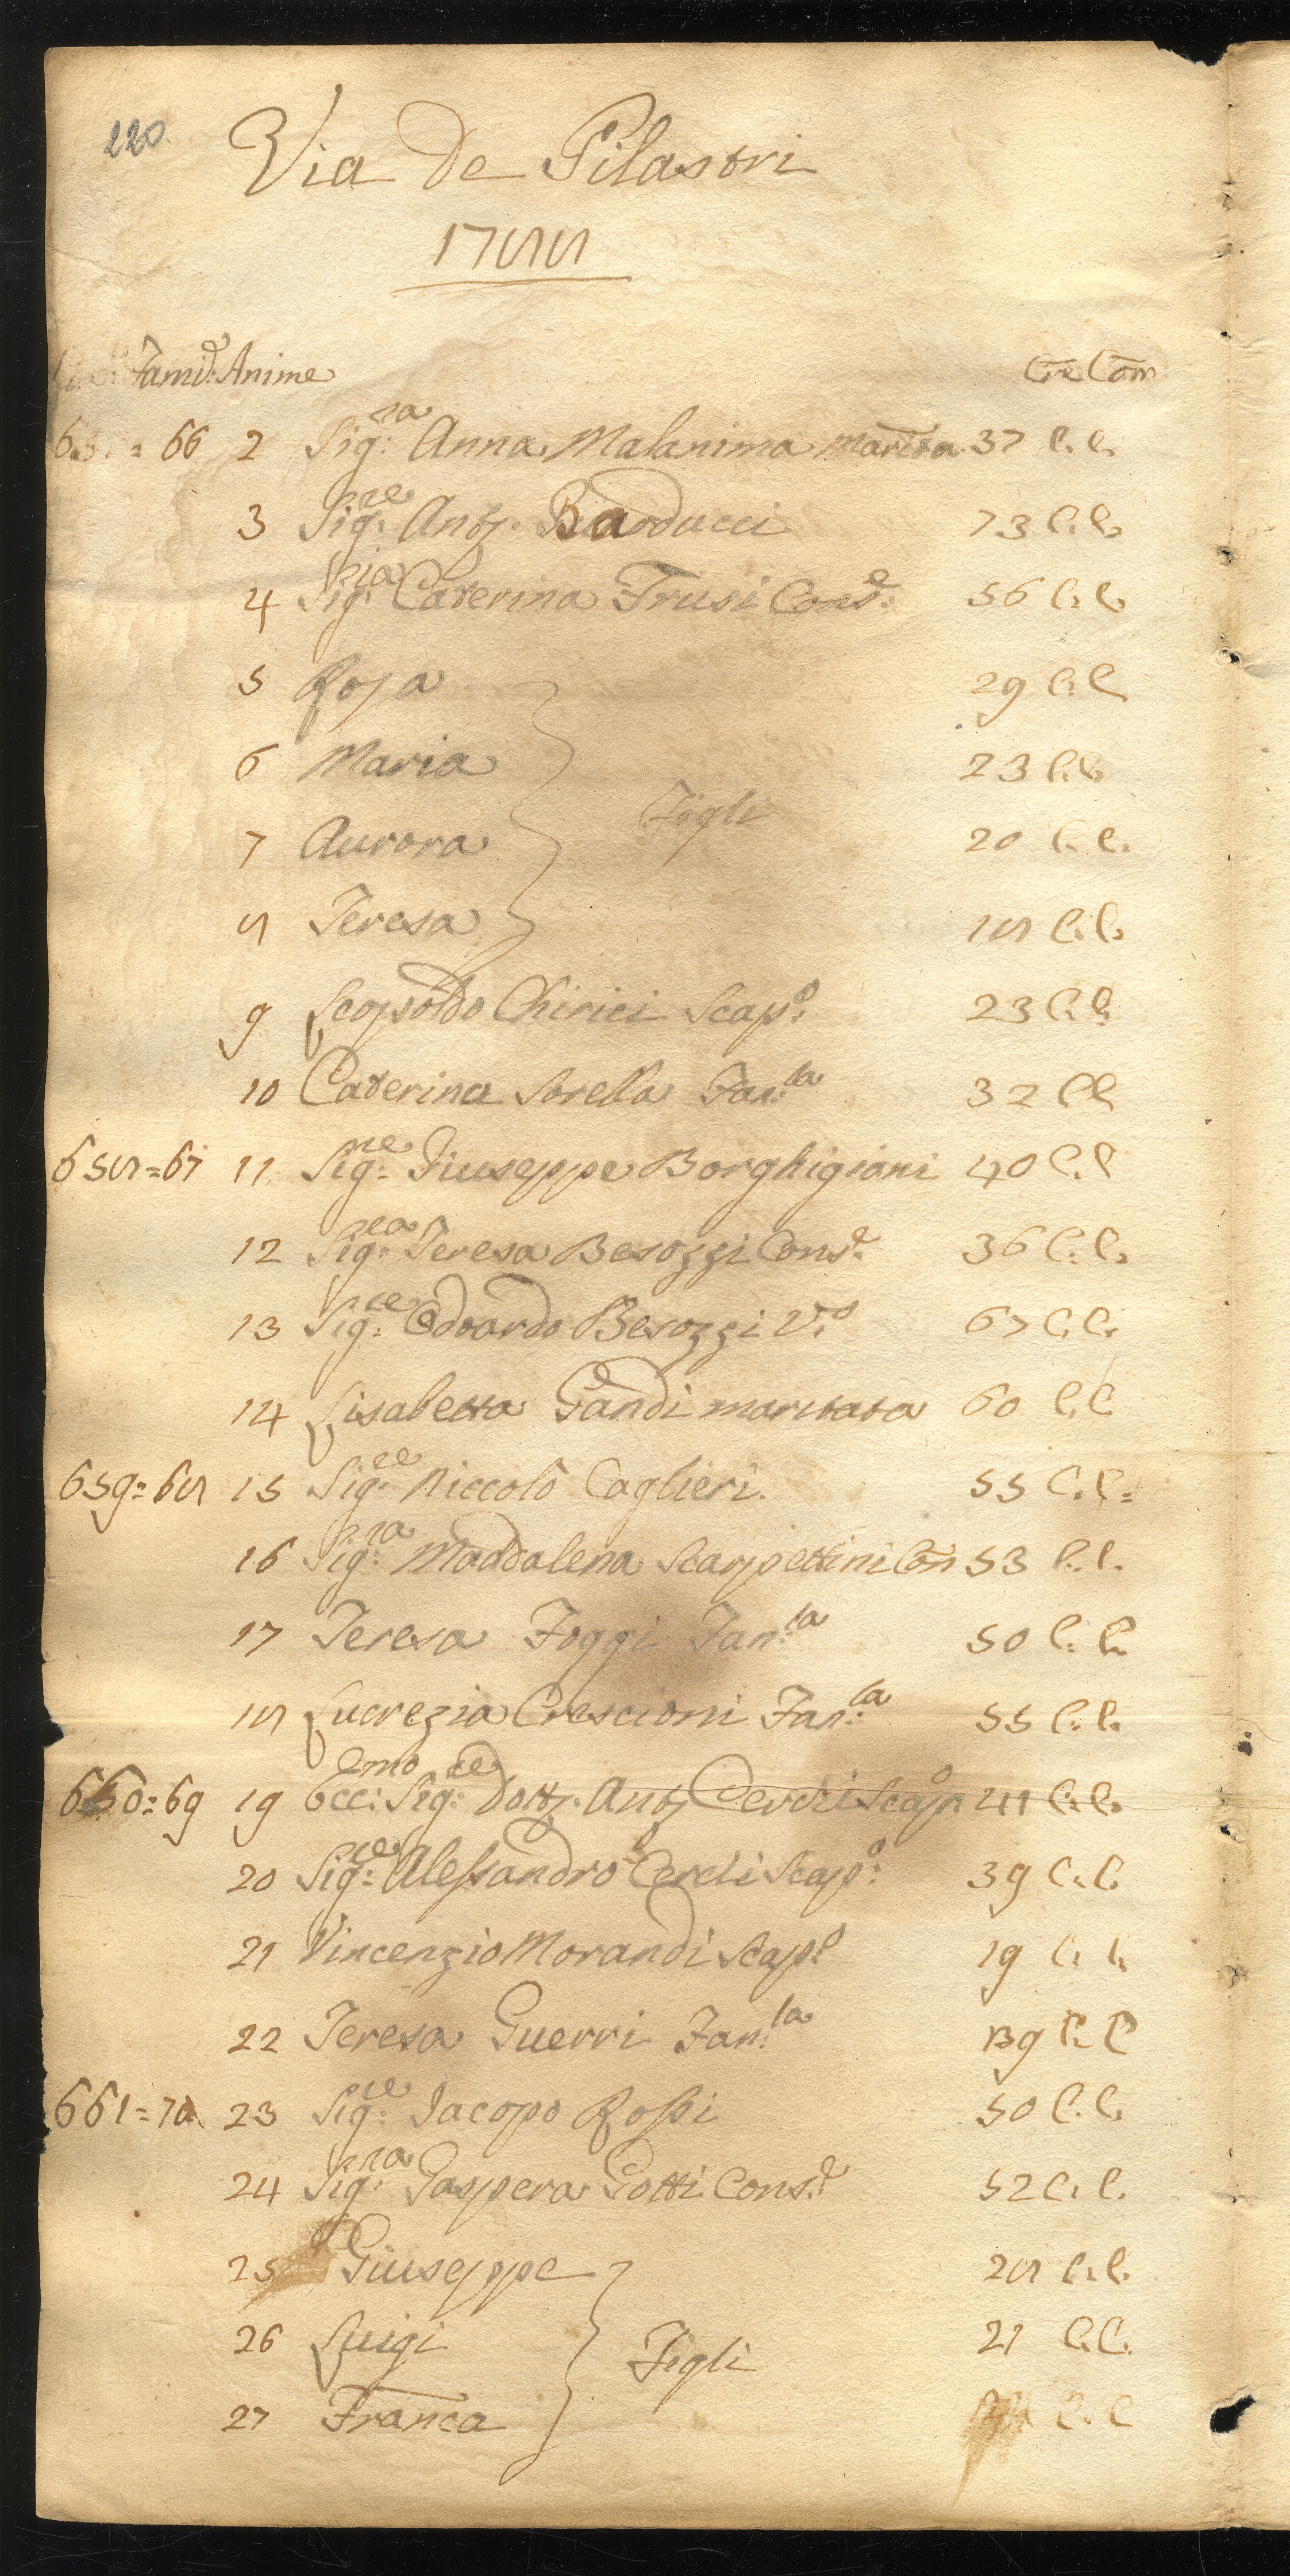 220
Via de Pilastri
1788
Famie: Anime Cre Com
= 66 2 Sig:ra Anna Malanima marita 37 C. C.
3 Sig:re Anto. Barducci 73 C. C.
4 Sig:ra Caterina Frusi Cons:e 56 C. C.
5 Rosa 29 C. C
6 Maria 23 C. C
7 Aurora Figli 20 C. C.
8 Teresa 18 C. C.
9 Leopoldo Chirici Scap:o 23 C. C.
10 Caterina Sorella Fan:la 32 C C
658 = 67 11 Sig:re Giuseppe Borghigiani 40 C. C
12 Sig:ra Teresa Besozzi Cons:e 36 C. C.
13 Sig:re Odoardo Besozzi V:o 67 C. C.
14 Lisabetta Gandi maritata 60 C. C
659 = 68 15 Sig:re Niccolò Caglieri. 55 C. C =
16 Sig:ra Maddalena Scarpettini Con 53 C. C.
17 Teresa Foggi Fan:la 50 C. C.
18 Lucrezia Crescioni Fan:la 55 C. C.
660 = 69 19 Ecc:emo Sig:re Dott. Ant Cerchi Scap:o 41 C. C.
20 Sig:re Alessandro Cerchi Scap:o 39 C. C.
21 Vincenzio Morandi Scap:o 19 C. C.
22 Teresa Guerri Fan:la 39 C. C
661 = 70 23 Sig:re Jacopo Rossi 50 C. C.
24 Sig:ra Gaspera Gotti Cons:e 52 C. C.
25 Giuseppe 28 C. C.
26 Luigi Figli 21 C. C.
27 Franca C. C